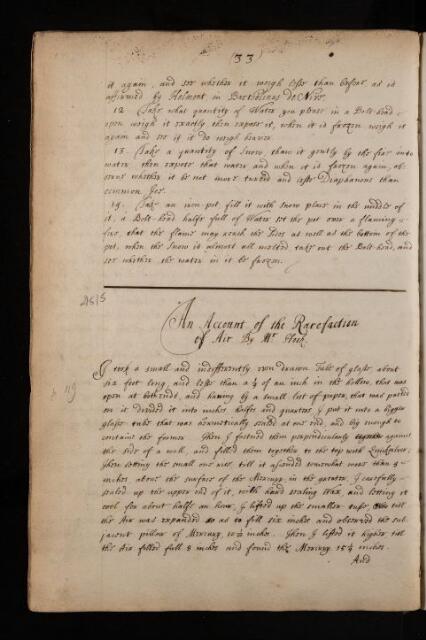 (33)
it again, and see whether it weigh lesse than before, as is
affirmed by Helmont in Bartholinus de Nive.
12. Take what quantity of Water you please in a Bolt-head
open weigh it exactly then expose it, when it is frozen weigh it
again and see if it do weigh heavier.
13. Take a quantity of Snow, thaw it gently by the fire into
water, then expose that water and when it is frozen again, ob-
serve whether it be not more turned and lesse Diaphanous than
common Ice.
14. Take an iron pot, fill it with Snow place in the middle of
it, a Bolt-head halfe full of Water set the pot over a flaming
fire, that the flame may reach the sides as well as the bottom of the
pot, when the Snow is almost all melted take out the Bolt-head, and
see whether the water in it be frozen.
An Account of the Rarefaction
of Air By Mr. Hook
I took a small and indifferently even drawn Tube of glasse about
six foot long, and lesse than a ¼ of an inch in the hollow, that was
open at both ends, and having by a small list of paper, that was pasted
on it divided it into inches halfes and quarters, I put it into a bigger
glasse tube that was hermetically sealed at one end, and big enough to
contain the former. Then I fastned them perpendicularly against
the side of a wall, and filled them together to the top with Quicksilver,
Then letting the small one rise, till it ascended somewhat more than
inches above the surface of the Mercury in the greater, I carefully
sealed up the upper end of it, with hard sealing Wax, and letting it
cool for about halfe an hour, I lifted up the smaller tube, till
the Air was expanded so as to fill six inches and observed the sub-
jacent pillar of Mercury, inches. Then I lifted it higher till
the Air filled full 8 inches and found the Mercury 15¼ inches.
And